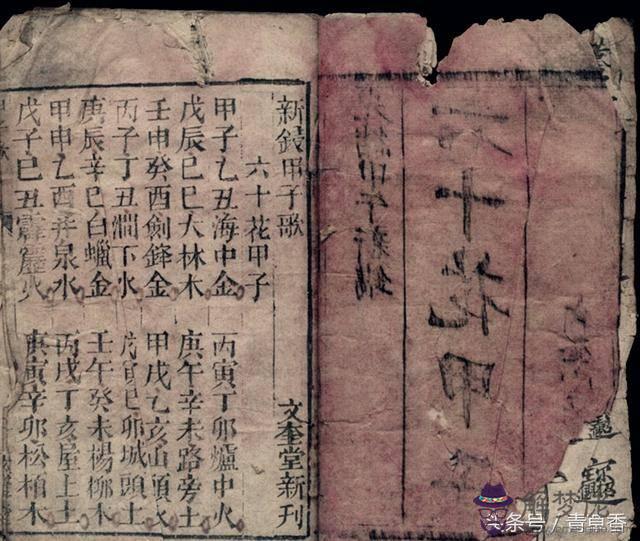 十花甲
甲午新鐫
新鋟甲子歌 文奎堂新刊
六十花甲子
甲子乙丑海中金 丙寅丁卯爐中火
戊辰己巳大林木 庚午辛未路旁土
壬申癸酉劍鋒金 甲戌乙亥山頭火
丙子丁丑澗下水 戊寅己卯城頭土
庚辰辛巳白蠟金 壬午癸未楊柳木
甲申乙酉井泉水 丙戌丁亥屋上土
戊子己丑霹靂火 庚寅辛卯松柏木
解梦
头条号／青食香